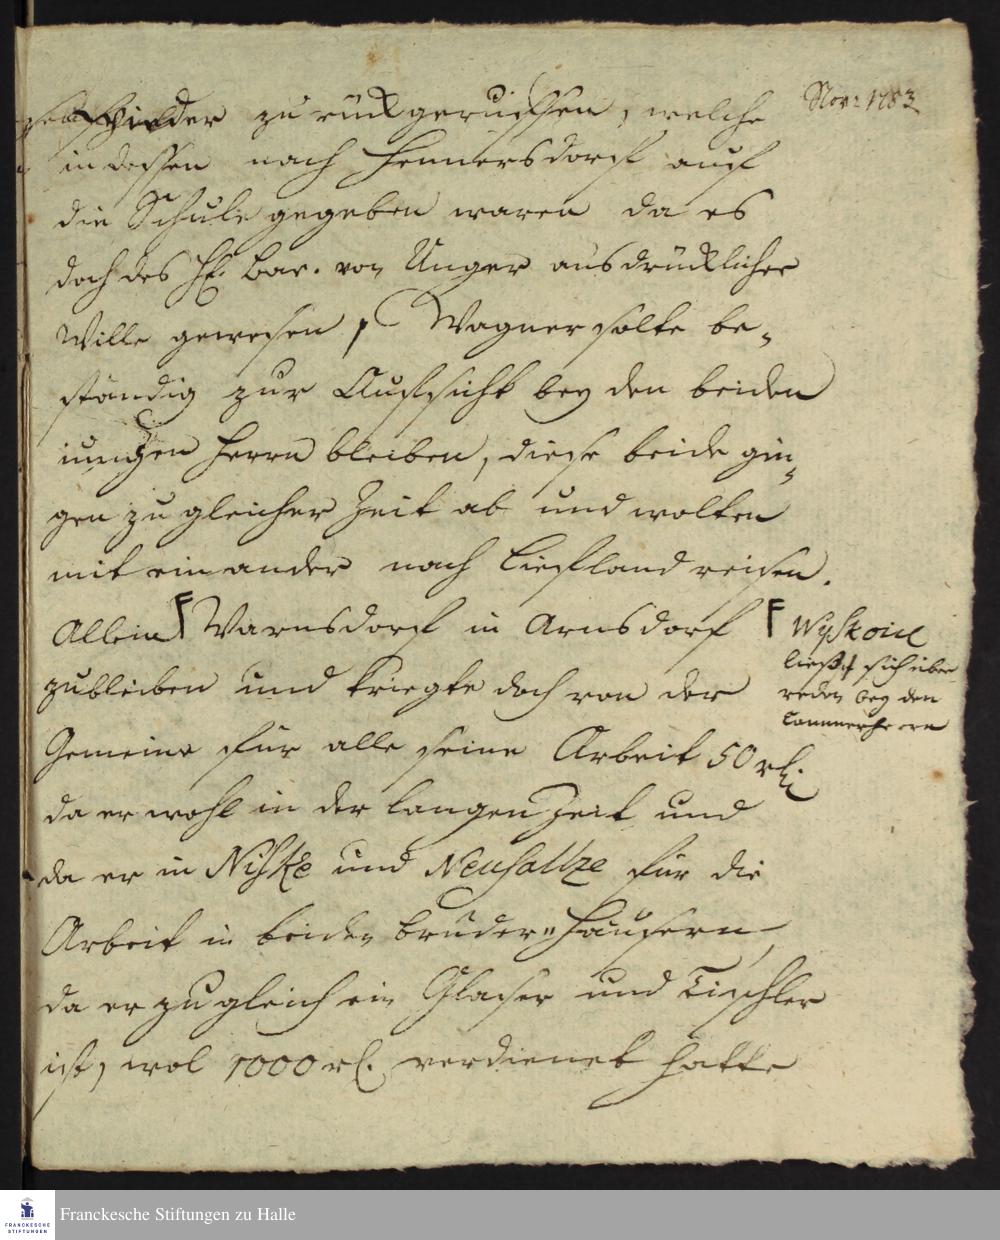 Nov: 1783
zurückgeruffen, welche
indessen nach Hennersdorf auf
die Schule gegeben waren da es
doch des H. Bar. von Unger ausdrücklicher
Wille gewesen, Wagner solte be-
ständig zur Aufsicht bey den beiden
jungen Herrn bleiben, diese beide gin-
gen zu gleicher Zeit ab und wolten
mit einander nach Liefland reisen.
Allein Warnsdorf in Arnsdorf
ließ sich über-
reden bey den
Cammerherrn
zubleiben und kriegte doch von der
Gemeine für alle seine Arbeit 50 rth
da er wohl in der langen Zeit und
da er in Niske und Neusaltze für die
Arbeit in beiden Brüder-Häusern,
da er zugleich ein Glaser und Tischler
ist, wol 1000 rl. verdienet hatte
Franckesche Stiftungen zu Halle
FRANCKESCHE
STIFTUNGEN